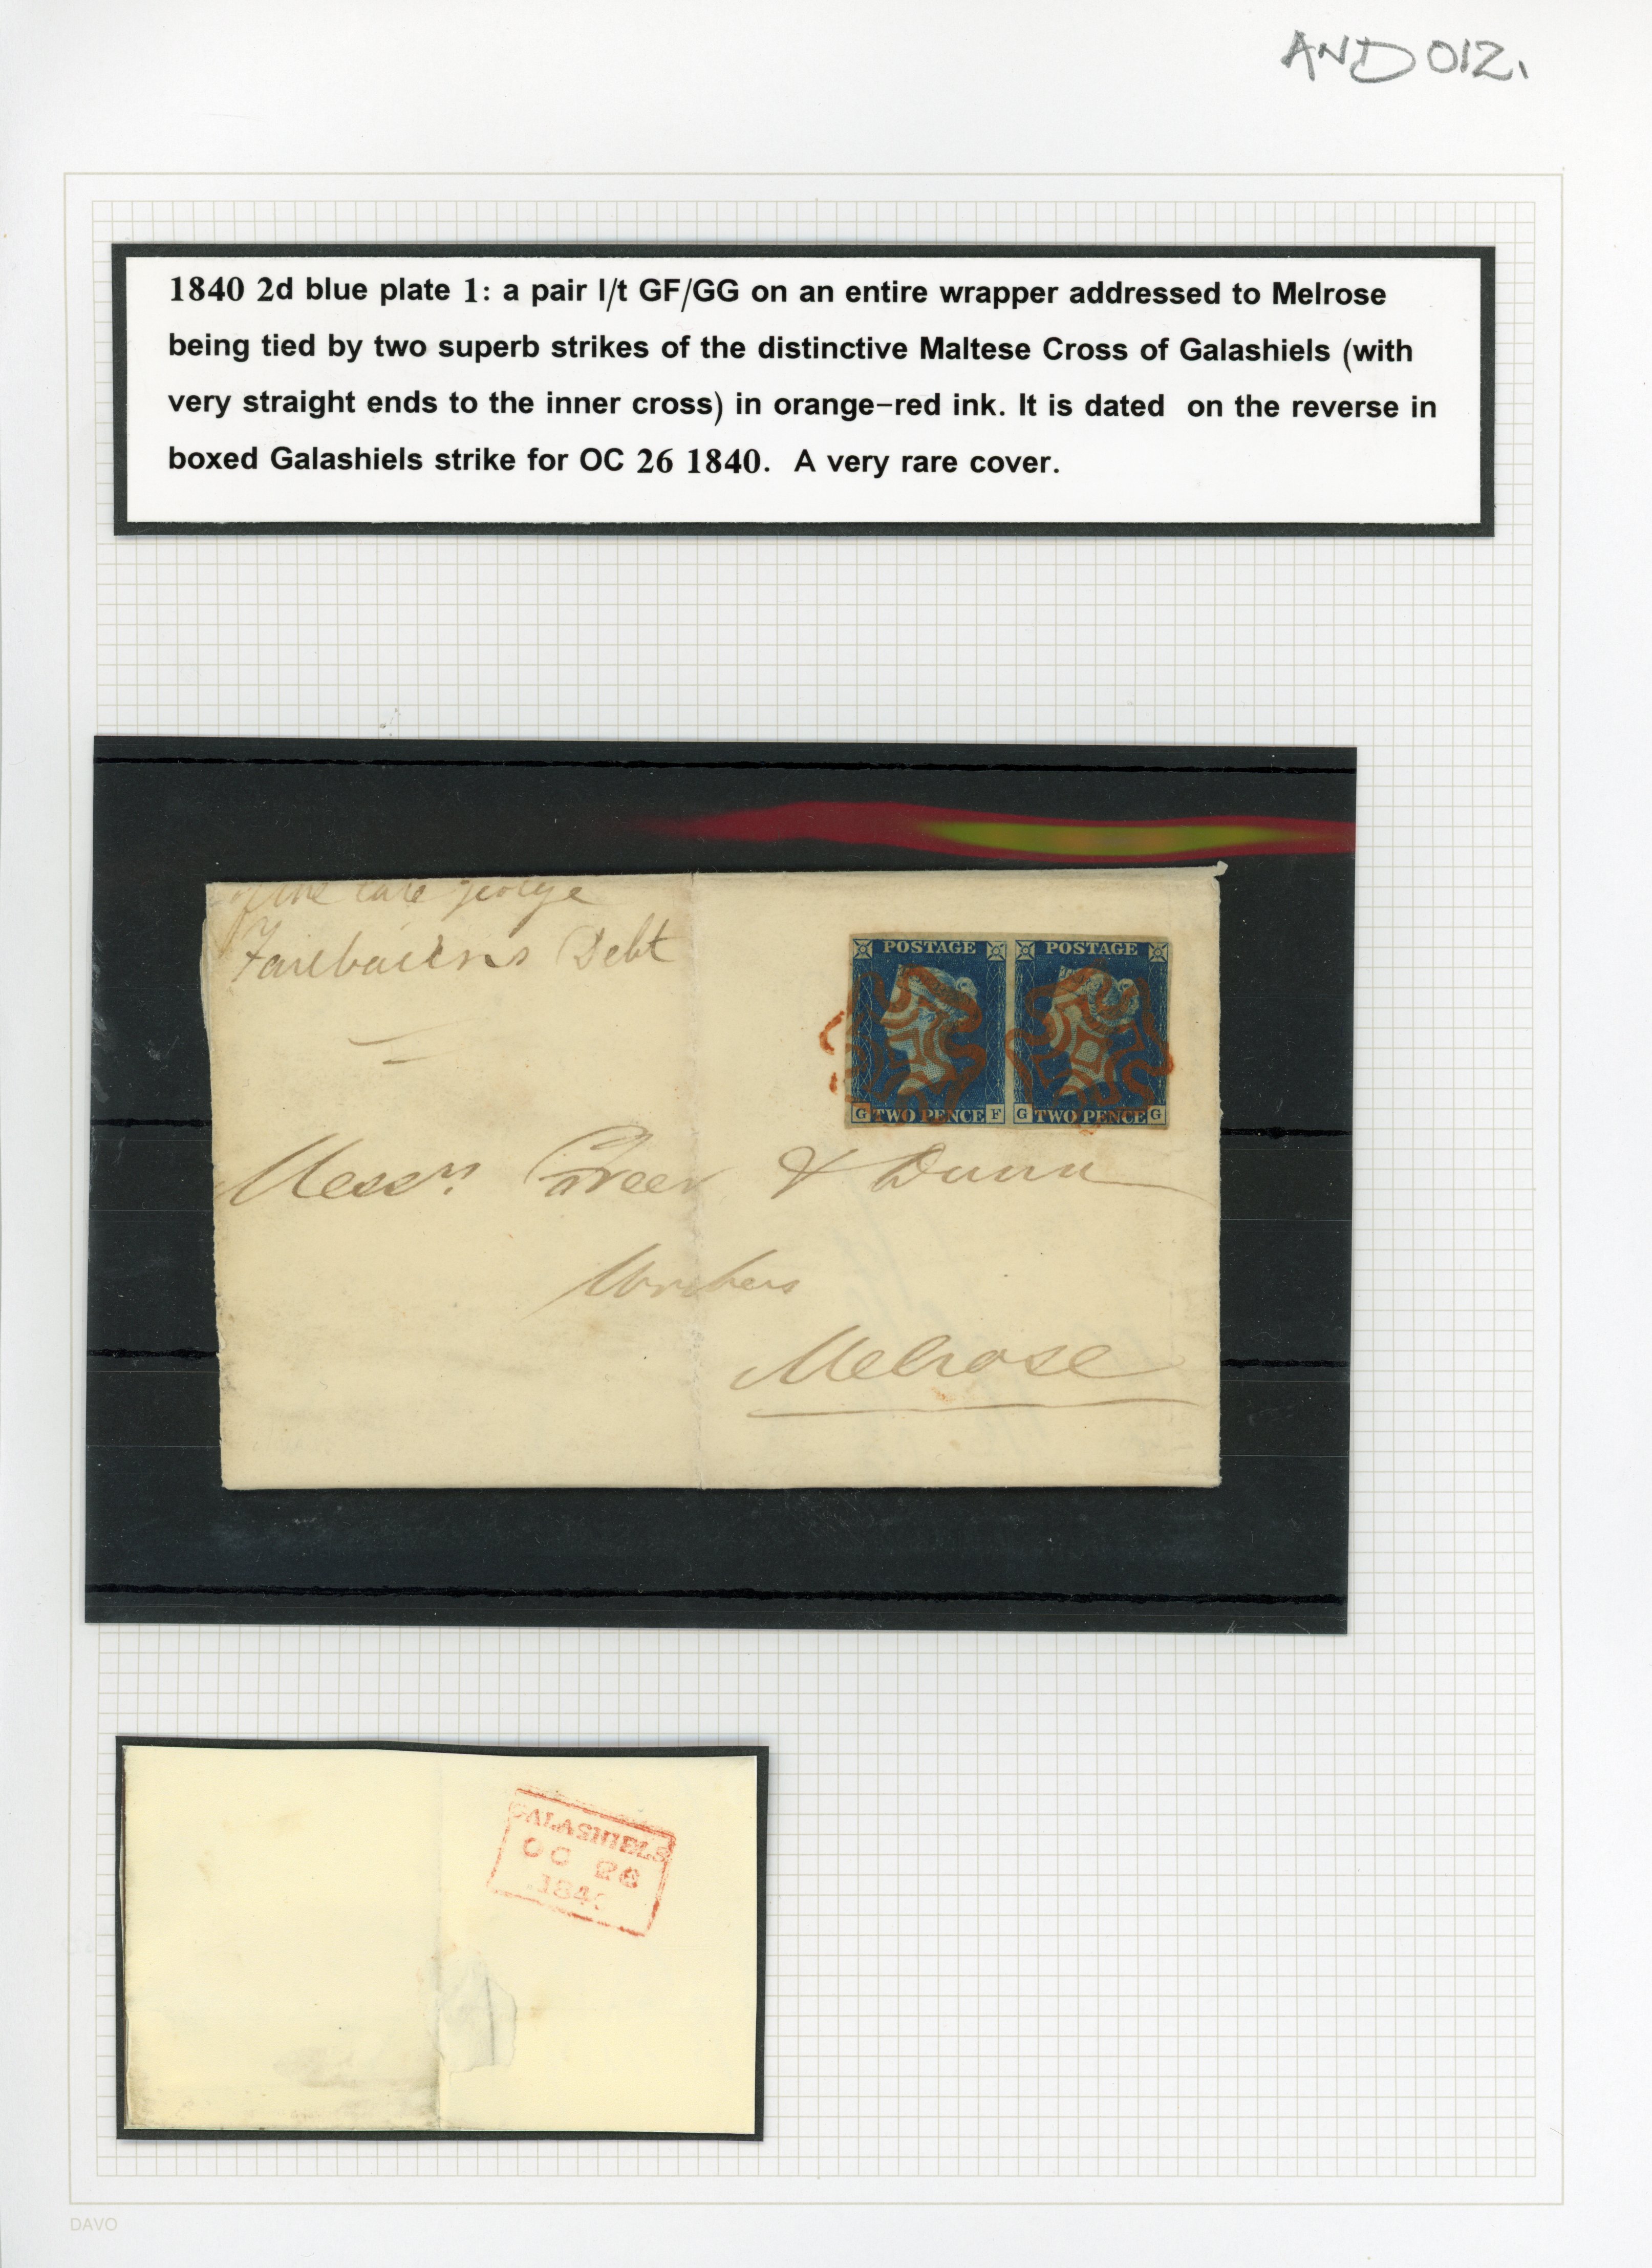 AND 012.
1840 2d blue plate 1: a pair l/t GF/GG on an entire wrapper addressed to Melrose
being tied by two superb strikes of the distinctive Maltese Cross of Galashiels (with
very straight ends to the inner cross) in orange–red ink. It is dated on the reverse in
boxed Galashiels strike for OC 26 1840. A very rare cover.
of the late george
Fairbairns Debt
POSTAGE POSTAGE
G TWO PENCE F G TWO PENCE G
Messrs & Dunn
Writers
Melrose
GALASHIELS
OC 26
184
DAVO